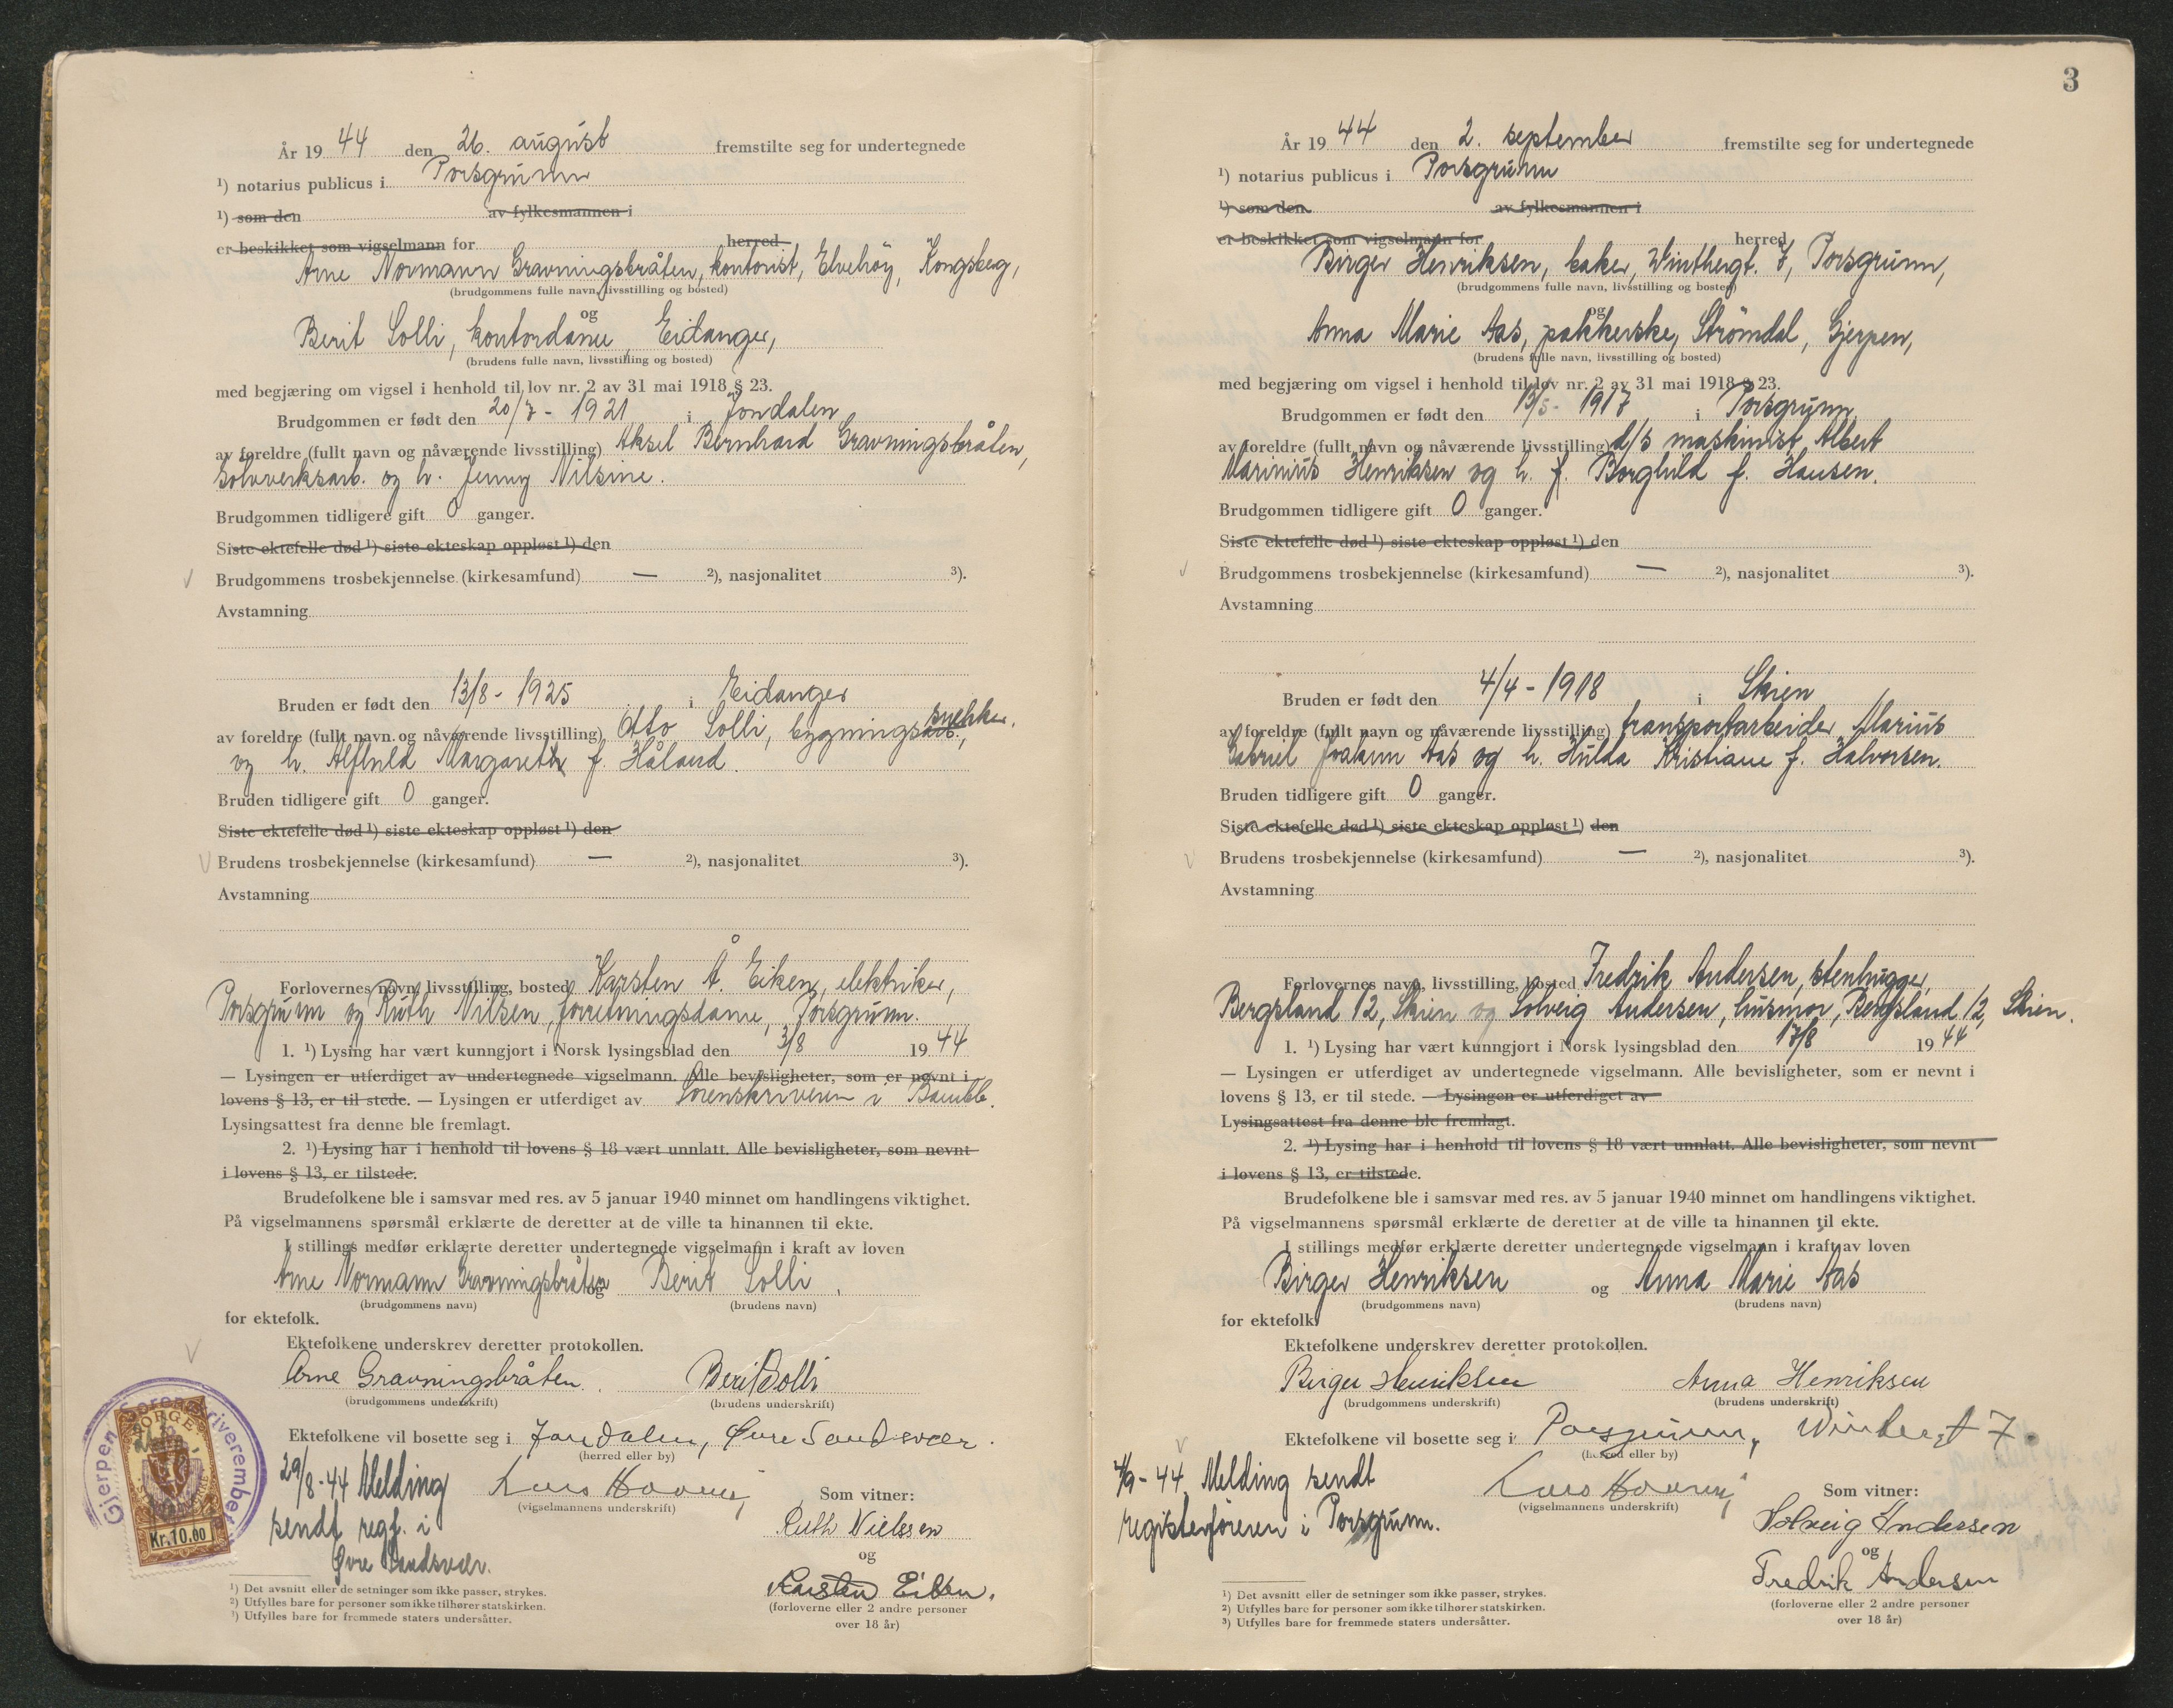 År 19 44 den 26. august fremstilte seg for undertegnede
¹) notarius publicus i Porsgrunn
¹) som den av fylkesmannen i
er beskikket som vigselmann for herred
Arne Normann Gravningsbråten, kontorist, Elvehøy, Kongsberg,
(brudgommens fulle navn, livsstilling og bosted)
og
Berit Solli, kontordame, Eidanger,
(brudens fulle navn, livsstilling og bosted)
med begjæring om vigsel i henhold til lov nr. 2 av 31 mai 1918 § 23.
Brudgommen er født den 20/7 - 1921 i Jondalen
av foreldre (fullt navn og nåværende livsstilling) Aksel Bernhard Gravningsbråten,
Sølvverksarb. og h. Jenny Nilsine.
Brudgommen tidligere gift 0 ganger.
Siste ektefelle død ¹) siste ekteskap oppløst ¹) den
Brudgommens trosbekjennelse (kirkesamfund) — ²), nasjonalitet ³).
Avstamning
Bruden er født den 13/8 - 1925 i Eidanger
av foreldre (fullt navn og nåværende livsstilling) Otto Solli, bygningssnekker,
og h. Alfhild Margareth f. Håland.
Bruden tidligere gift 0 ganger.
Siste ektefelle død ¹) siste ekteskap oppløst ¹) den
Brudens trosbekjennelse (kirkesamfund) — ²), nasjonalitet ³).
Avstamning
Forlovernes navn, livsstilling, bosted Karsten Å. Eiken, elektriker,
Porsgrunn og Ruth Nilsen, forretningsdame, Porsgrunn.
1. ¹) Lysing har vært kunngjort i Norsk lysingsblad den 3/8 19 44
— Lysingen er utferdiget av undertegnede vigselmann. Alle bevisligheter, som er nevnt i
lovens § 13, er til stede. — Lysingen er utferdiget av Sorenskriveren i Bamble.
Lysingsattest fra denne ble fremlagt.
2. ¹) Lysing har i henhold til lovens § 18 vært unnlatt. Alle bevisligheter, som nevnt
i lovens § 13, er tilstede.
Brudefolkene ble i samsvar med res. av 5 januar 1940 minnet om handlingens viktighet.
På vigselmannens spørsmål erklærte de deretter at de ville ta hinannen til ekte.
I stillings medfør erklærte deretter undertegnede vigselmann i kraft av loven
Arne Normann Gravningsbråten og Berit Solli,
(brudgommens navn) (brudens navn)
for ektefolk.
Ektefolkene underskrev deretter protokollen.
Arne Gravningsbråten. Berit Solli
(brudgommens underskrift) (brudens underskrift)
Ektefolkene vil bosette seg i Jondalen, Øvre Sandsvær.
(herred eller by)
29/8-44 Melding
sendt regf. i
Øvre Sandsvær.
(vigselmannens underskrift)
Som vitner:
Ruth Nielssen
og
Karsten Eiken.
(forloverne eller 2 andre personer
over 18 år)
Gjerpen Sorenskriverembete
NORGE
Kr.10.00
¹) Det avsnitt eller de setninger som ikke passer, strykes.
²) Utfylles bare for personer som ikke tilhører statskirken.
³) Utfylles bare for fremmede staters undersåtter.
3
År 19 44 den 2. september fremstilte seg for undertegnede
¹) notarius publicus i Porsgrunn
¹) som den av fylkesmannen i
er beskikket som vigselmann for herred
Birger Henriksen, baker, Winthergt. 7, Porsgrunn,
(brudgommens fulle navn, livsstilling og bosted)
og
Anna Marie Aas, pakkerske, Strömdal, Gjerpen,
(brudens fulle navn, livsstilling og bosted)
med begjæring om vigsel i henhold til lov nr. 2 av 31 mai 1918 § 23.
Brudgommen er født den /5 - 1917 i Porsgrunn
av foreldre (fullt navn og nåværende livsstilling) d/s maskinist Albert
Marinius Henriksen og h. f. Borghild f. Hansen.
Brudgommen tidligere gift 0 ganger.
Siste ektefelle død ¹) siste ekteskap oppløst ¹) den
Brudgommens trosbekjennelse (kirkesamfund) — ²), nasjonalitet ³).
Avstamning
Bruden er født den 4/4 - 1918 i Skien
av foreldre (fullt navn og nåværende livsstilling) transportarbeider Marius
Gabriel Joakim Aas og h. Hulda Kristiane f. Halvorsen.
Bruden tidligere gift 0 ganger.
Siste ektefelle død ¹) siste ekteskap oppløst ¹) den
Brudens trosbekjennelse (kirkesamfund) — ²), nasjonalitet ³).
Avstamning
Forlovernes navn, livsstilling, bosted Fredrik Andersen, stenhugger,
Bergsland 12, Skien og Solveig Andersen, husmor, Bergsland 12, Skien.
1. ¹) Lysing har vært kunngjort i Norsk lysingsblad den 17/8 19 44
— Lysingen er utferdiget av undertegnede vigselmann. Alle bevisligheter, som er nevnt i
lovens § 13, er til stede. — Lysingen er utferdiget av
Lysingsattest fra denne ble fremlagt.
2. ¹) Lysing har i henhold til lovens § 18 vært unnlatt. Alle bevisligheter, som nevnt
i lovens § 13, er tilstede.
Brudefolkene ble i samsvar med res. av 5 januar 1940 minnet om handlingens viktighet.
På vigselmannens spørsmål erklærte de deretter at de ville ta hinannen til ekte.
I stillings medfør erklærte deretter undertegnede vigselmann i kraft av loven
Birger Henriksen og Anna Marie Aas
(brudgommens navn) (brudens navn)
for ektefolk.
Ektefolkene underskrev deretter protokollen.
Birger Henriksen Anna Henriksen
(brudgommens underskrift) (brudens underskrift)
Ektefolkene vil bosette seg i Porsgrunn, Winthergt 7.
(herred eller by)
4/9-44 Melding sendt
registerføreren i Porsgrunn.
(vigselmannens underskrift)
Som vitner:
Solveig Andersen
og
Fredrik Andersen
(forloverne eller 2 andre personer
over 18 år)
¹) Det avsnitt eller de setninger som ikke passer, strykes.
²) Utfylles bare for personer som ikke tilhører statskirken.
³) Utfylles bare for fremmede staters undersåtter.